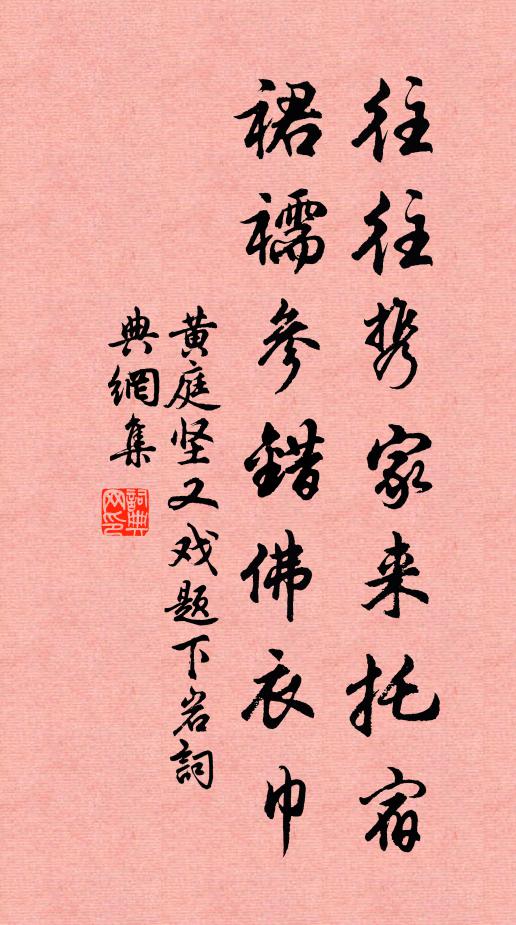 往往携家来托宿
裙襦参錯佛衣巾
黄庭坚又戏题下岩詞
典網集
詞典网印